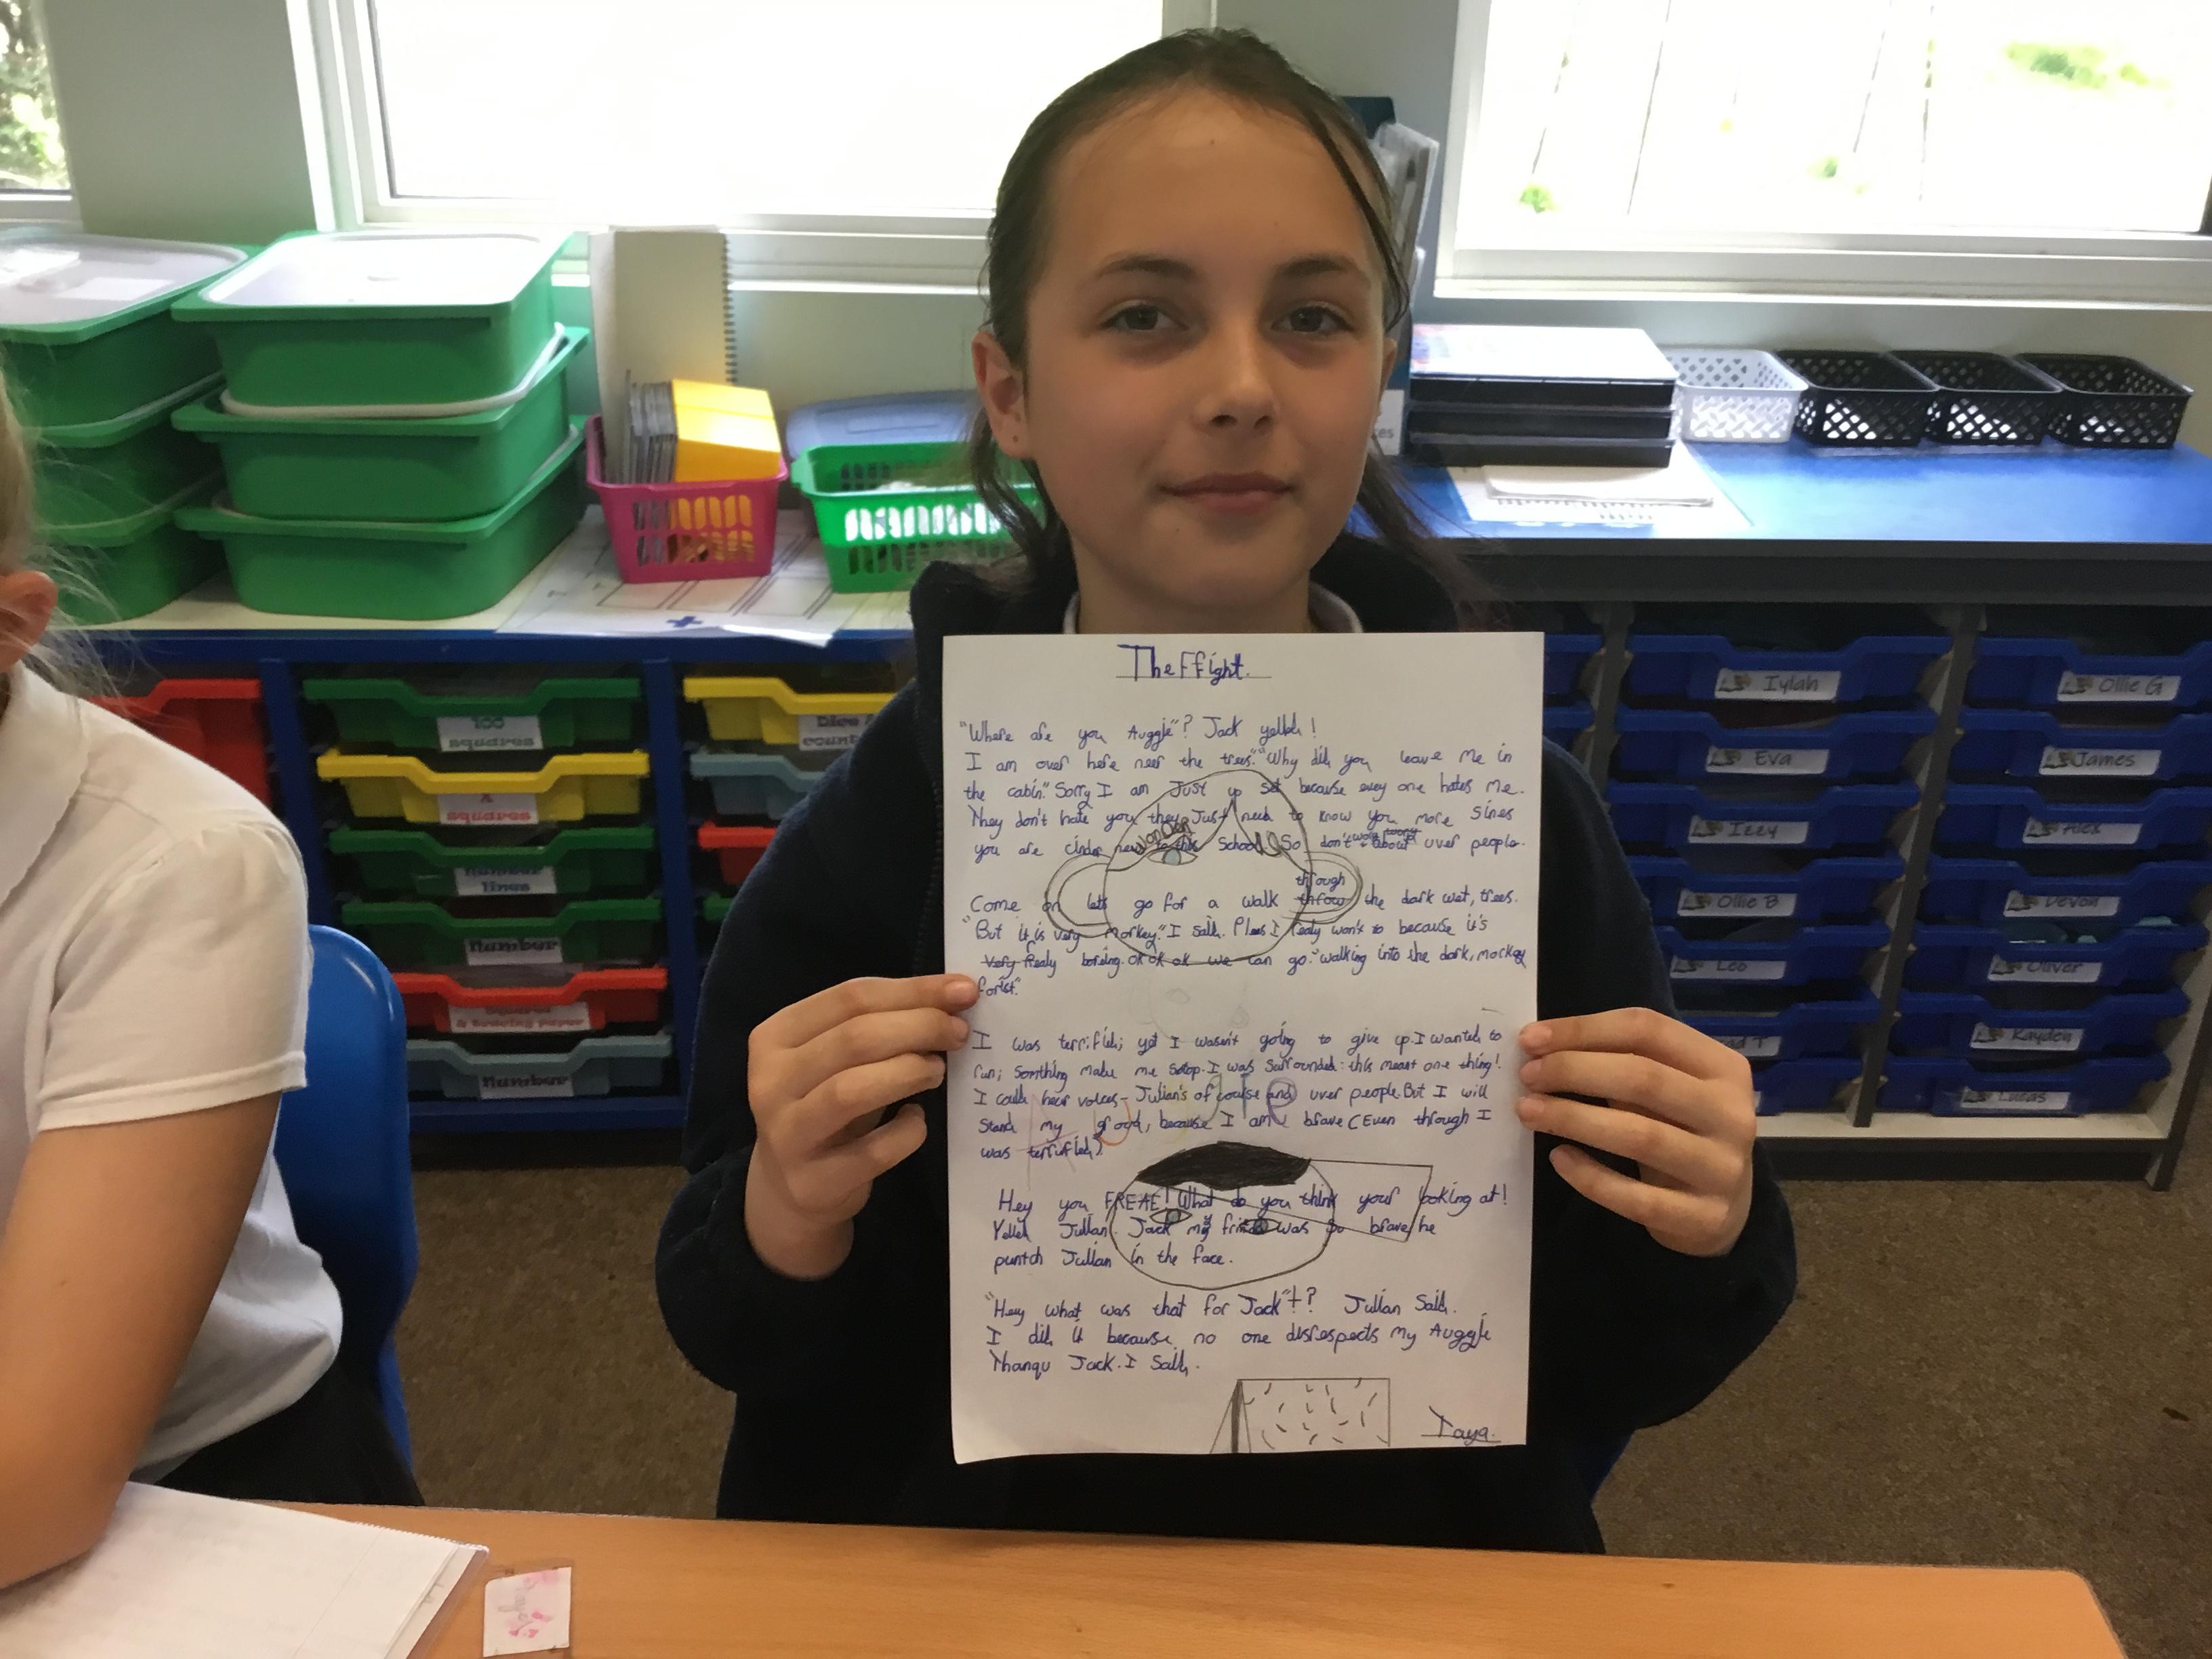 The Ffight.
"Where are you Auggie"? Jack yelled!
I am over here neer the trees." "Why did you leave me in
the cabin." Sorry I am Just up set because every one hates me.
They don't hate you they Just need to know you more sines
you are cinder new to this school. So don't worry about uver people.
Come on lets go for a walk through throw the dark wet, trees.
"But it is very morkey." I said. Plees I realy won't to because it's
very realy boring. ok ok ok we can go." walking into the dark, morkey
forist."
I was terrified; yet I wasn't going to give up. I wanted to
run; somthing make me stop. I was surrounded: this meant one thing!
I could hear voices- Julian's of course and uver people. But I will
stand my grood, because I am brave (Even through I
was terrified)
Hey you FREAE! What do you think your looking at!
Yelled Julian. Jack my friend was so brave he
puntch Julian in the face.
"Hey what was that for Jack"!? Julian Said.
I did it because no one disrespects my Auggie
Thanqu Jack. I Said.
Taya.
100
squares
squares
number
lines
Number
Number
Dice &
Iylah
Ollie G
Eva
James
Izzy
Alex
Ollie B
Devon
Leo
Oliver
Kayden
Lucas